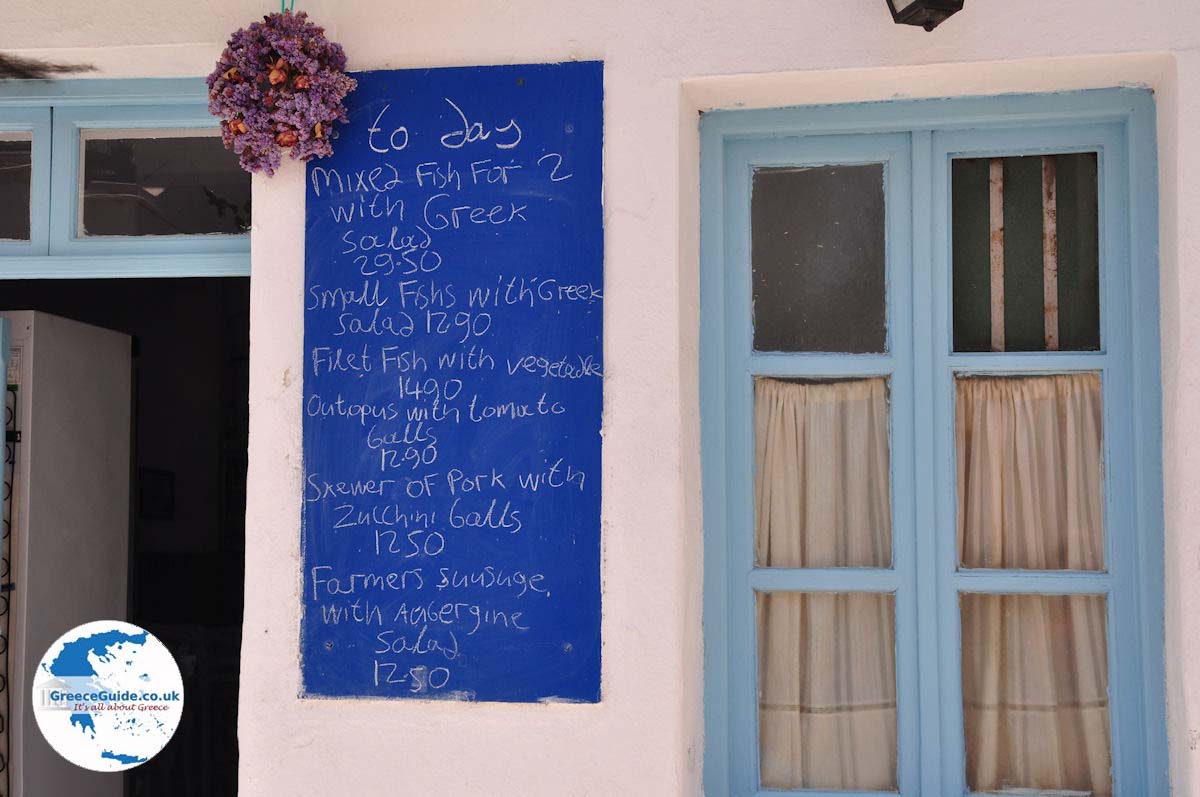 to day
Mixed Fish For 2
with Greek
salad
29.50
small Fishs with Greek
salad 12.90
Filet Fish with vegetable
14.90
Outopus with tomato
balls
12.90
Skewer OF Pork with
Zucchini balls
12.50
Farmers suusuge.
with Aubergine
salad
12.50
GreeceGuide.co.uk
It's all about Greece